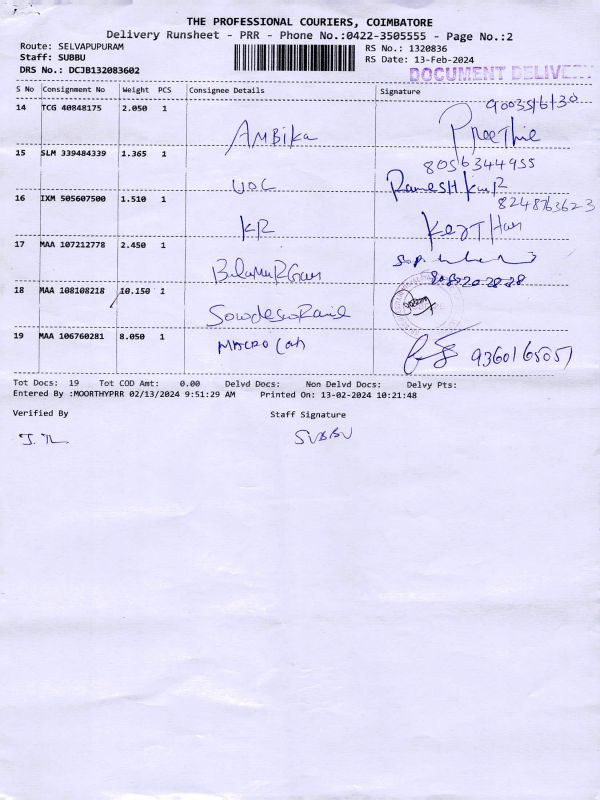 THE PROFESSIONAL COURIERS, COIMBATORE
Delivery Runsheet - PRR - Phone No.:0422-3505555 - Page No.:2
Route: SELVAPUPURAM
Staff: SUBBU
DRS No.: DCJB132083602
RS No.: 1320836
RS Date: 13-Feb-2024
DOCUMENT DELIVE
S No Consignment No Weight PCS Consignee Details Signature
9003516130
14 TCG 40848175 2.050 1
AMBika Preethie
15 SLM 339484339 1.365 1 8056344955
UOC RamesH kumR
16 IXM 505607500 1.510 1 8248763623
KR KeerTHan
17 MAA 107212778 2.450 1
BalamuRGan
18 MAA 108108218 10.150 1
19 MAA 106760281 8.050 1 MACRO 9360165051
Tot Docs: 19 Tot COD Amt: 0.00 Delvd Docs: Non Delvd Docs: Delvy Pts:
Entered By :MOORTHYPRR 02/13/2024 9:51:29 AM Printed On: 13-02-2024 10:21:48
Verified By Staff Signature
SUBBU